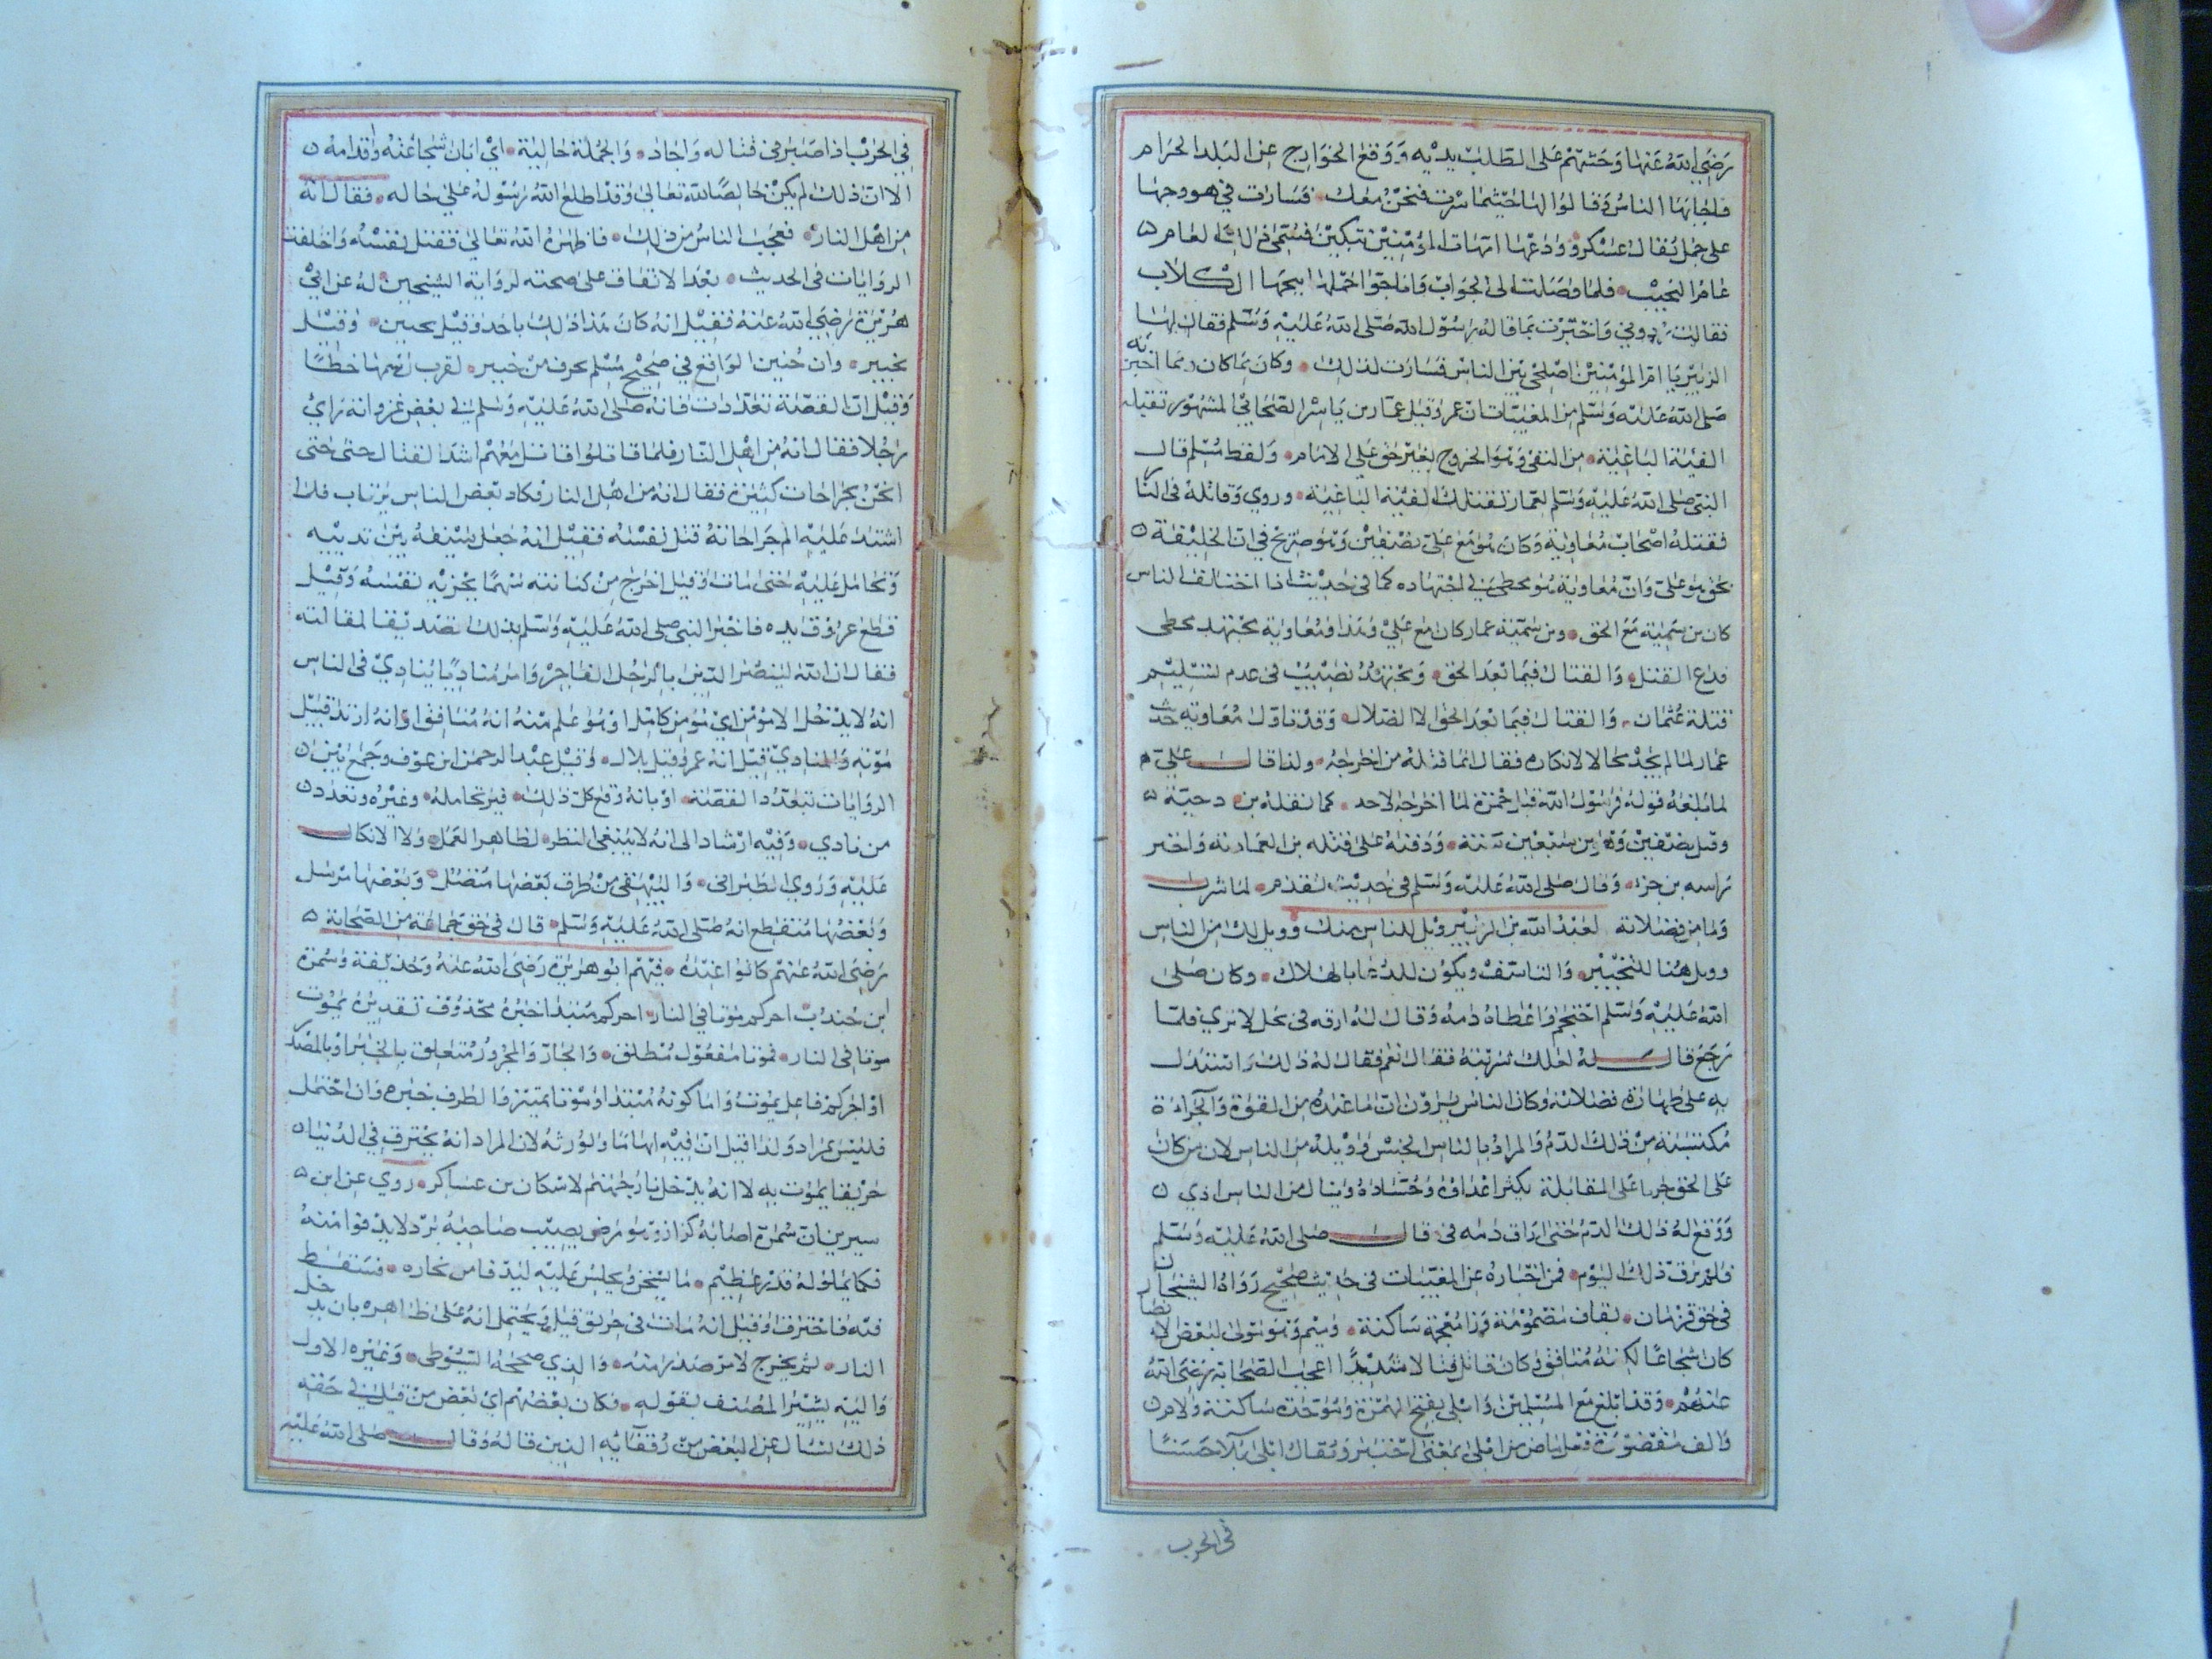 رضي الله عنها وحثهم على الطلب بديه ووقع الخوارج عن البلد الحرام
فاجابها الناس وقالوا لها حيثما سرت فنحن معك فسارت في هودجها
على جمل يقال عسكر وودعها امهات المؤمنين تبكين فسمي ذلك العام
عام النحيب فلما وصلت الى الحواب وأناخوا جملها نبحها الكلاب
فقالت ردوني واخبرت بما قاله رسول الله صلى الله عليه وسلم فقال لها
الزبير يا ام المؤمنين اصلحي بين الناس فسارت لذلك وكان ما كان ومما اخبر به
صلى الله عليه وسلم من المغيبات ان عمر وقيل عمار بن ياسر الصحابي المشهور تقتله
الفئة الباغية من البغي وهو الخروج بغير حق على الامام ولفظ مسلم قال
النبي صلى الله عليه وسلم لعمار تقتلك الفئة الباغية وروي وقاتله في النار
فقتله اصحاب معاوية وكان هو مع علي بصفين وهو صريح في ان الخليفة
بحق هو علي وان معاوية هو مخطي في اجتهاده كما في حديث اذا اختلف الناس
كان بن سمية مع الحق وبن سمية عمار كان مع علي وهذا ومعاوية مجتهد مخطي
فدع القتل والقتال فيما بعد الحق ومجتهد نصيب في عدم تسليم
قتلة عثمان والقتال فيما بعد الحق الا الضلال وقد تأول معاوية حديث
عمار لما لم يجد مجالا لانكاره فقال انما قتله من اخرجه ولذا قال علي
لما بلغه قوله فرسول الله قتل حمزة لما اخرجه لاحد كما نقله بن دحية
وقتل بصفين وهو بن سبعين سنة ودفنه علي قتله بن العمادية واحتز
راسه بن جزء وقال صلى الله عليه وسلم في حديث تقدم لما شرب
ولما من فضلاته لعبد الله بن الزبير ويل للناس منك وويل لك من الناس
وويل هنا للتخيير والتاسف ويكون للدعا بالهلاك وكان صلى
الله عليه وسلم احتجم واعطاه دمه وقال له ارقه في محل لا تري فلما
رجع قال له لعلك شربته فقال نعم فقال له ذلك واستدل
به على طهارة فضلاته وكان الناس يرون ان ما عنده من القوة والجراءة
مكتسبة من ذلك الدم والمراد بالناس الجنس وويله من الناس لان من كان
على الحق جريا على المقابلة يكثر اعداؤه وحساده وينال من الناس اذي
ووقع له ذلك الدم حتى اراق دمه في قال صلى الله عليه وسلم
فلم يرق ذلك اليوم فمن اخباره عن المغيبات في حديث صحيح رواه الشيخان
في حق قزمان بقاف مضمومة وزا معجمة ساكنة وميم وهو مولى لبعض الانصار
كان شجاعا لكنه منافق وكان قاتل قتالا شديدا اعجب الصحابة رضي الله
عنهم وقد ابلغ مع المسلمين وابلي بفتح الهمزة وموحدة ساكنة ولام
والف مقصورة فعل ماض من ابلى بمعنى اختبر ويقال ابلى بلاء حسنا
في الحرب
في الحرب اذا صبر في قتاله واجاد والجملة حالية اي ابان شجاعته واقدامه
الا ان ذلك لم يكن خالصا لله تعالى وقد اطلع الله رسوله على حاله فقال انه
من اهل النار فعجب الناس من ذلك فاظهره الله تعالى فقتل نفسه واختلفت
الروايات في الحديث بعد الاتفاق على صحته لرواية الشيخين له عن ابي
هريرة رضي الله عنه فقيل انه كان هذا ذلك باحد وقيل بحنين وقيل
بخيبر وان حنين الواقع في صحيح مسلم محرف من خيبر لقرب رسمهما خطا
وقيل ان القصة تعددت فانه صلى الله عليه وسلم في بعض غزواته راي
رجلا فقال انه من اهل النار فلما قاتلوا قاتل معهم اشد القتال حتى
اثخن بجراحات كثيرة فقال انه من اهل النار فكاد بعض الناس يرتاب فلما
اشتد عليه الم جراحاته قتل نفسه فقيل انه جعل سيفه بين ثدييه
وتحامل عليه حتى مات وقيل اخرج من كنانته سهما يجزيه نفسه وقيل
قطع عروق يده فاخبر النبي صلى الله عليه وسلم بذلك تصديقا لمقالته
فقال ان الله لينصر الدين بالرجل الفاجر وامر مناديا ينادي في الناس
انه لا يدخل الا مؤمن اي مؤمن كامل او هو علم منه انه منافق او انه ارتد قبيل
موته والمنادي قيل انه عمر وقيل بلال وقيل عبد الرحمن ابن عوف وجمع بين
الروايات بتعدد القصة او بانه وقع كل ذلك فيه تحامله وغيره وتعدد
من نادي وفيه ارشاد الى انه لا ينبغي النظر لظاهر العمل ولا الاتكال
عليه وروي الطبراني والبيهقي من طرف بعضها متصل وبعضها مرسل
وبعضها منقطع انه صلى الله عليه وسلم قال في حق جماعة من الصحابة
رضي الله عنهم كانوا عنده فيهم ابو هريرة رضي الله عنه وحذيفة وسمرة
ابن جندب اخركم موتا في النار اخركم مبتدا خبره محذوف تقديره يموت
موتا في النار فموتا مفعول مطلق والجار والمجرور متعلق بالخبر او بالمصدر
او اخركم فاعل يموت واما كونه مبتدا وموتا تمييز والظرف خبره وان احتمل
فليس بمراد ولذا قيل ان فيه ابهاما والتورية لان المراد انه يحترق في الدنيا
حريقا يموت به لا انه يدخل نار جهنم لاسكان بن عساكر روي عن ابن
سيرين ان سمرة اصابه كزاز وهو مرض يصيب صاحبه برد لا يدفوا منه
فكان يملؤ له قدر عظيم ما يسخن ويجلس عليه ليدفا من بخاره فسقط
فيه فاحترق وقيل انه مات في حريق قيل ويحتمل انه على ظاهره بان يدخل
النار ثم يخرج لامر صدر منه والذي صححه السيوطي وغيره الاول
واليه يشير المصنف بقوله فكان بعضهم اي بعض من قيل في حقه
ذلك يسال عن البعض من رفقائه الذين قاله وقال صلى الله عليه